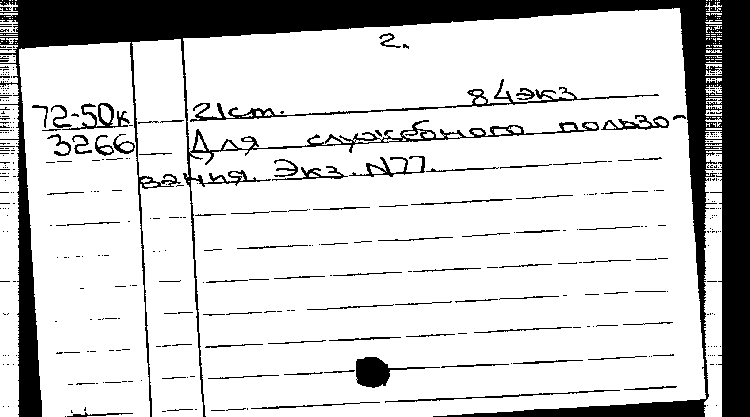 2.
72-50к 21см. 84экз
3266 Для служебного пользо-
вания. Экз. N77.